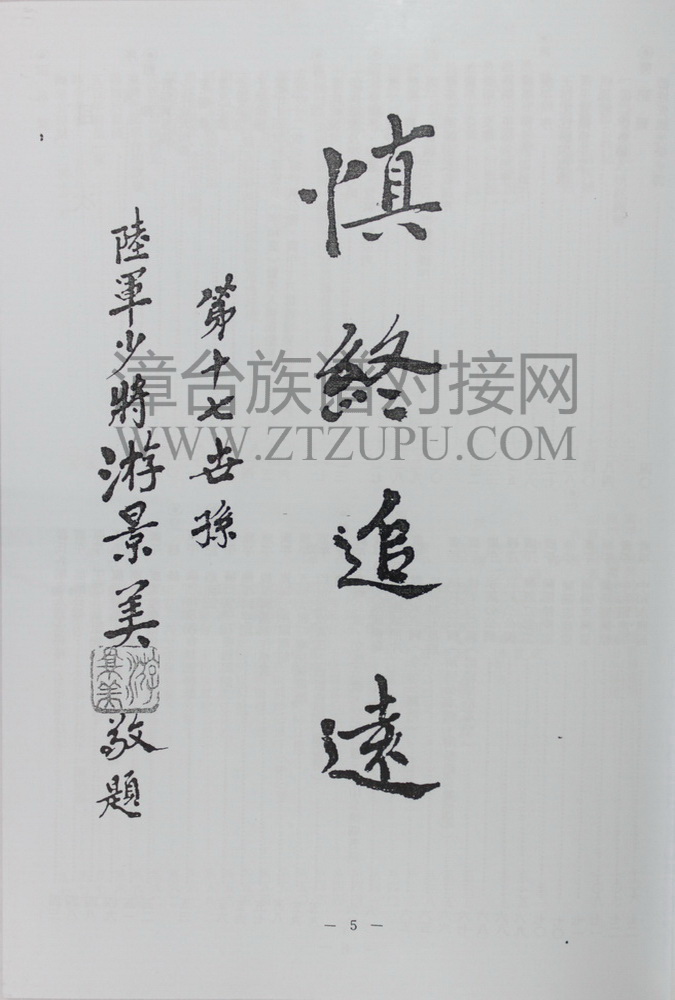 慎終追遠
第十七世孫
陸軍少將游景美敬題
游景美
漳台族谱对接网
WWW.ZTZUPU.COM
— 5 —